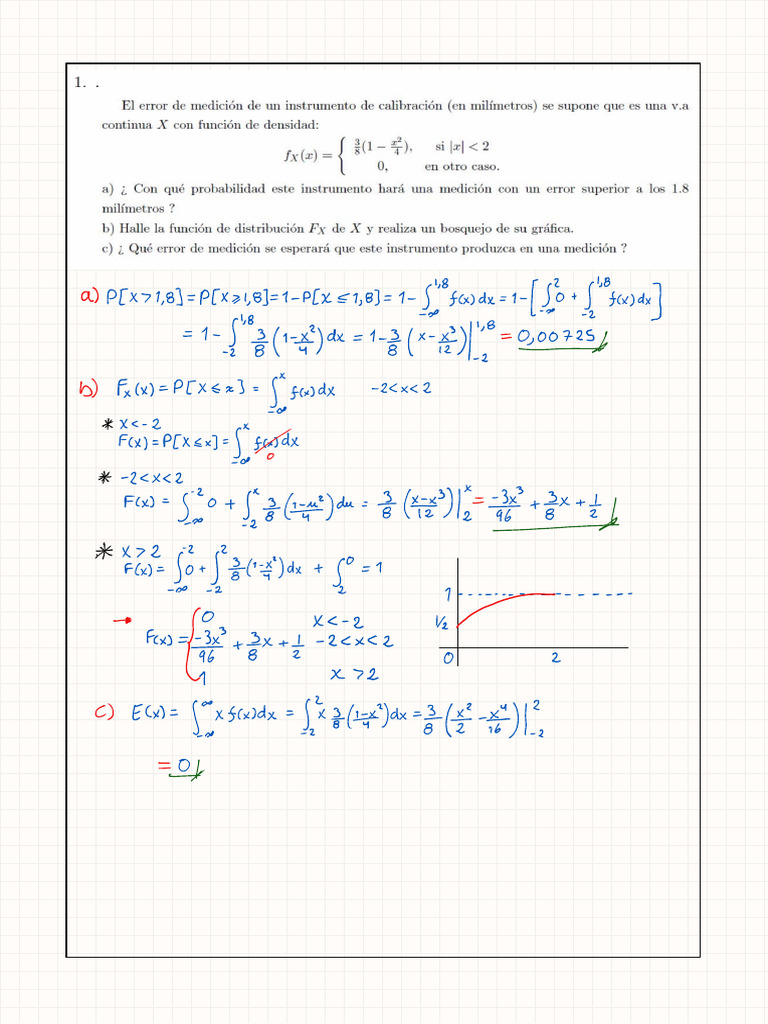 1. .
El error de medición de un instrumento de calibración (en milímetros) se supone que es una v.a
continua X con función de densidad:
f_X(x) = { 3/8(1 − x²/4), si |x| < 2
0, en otro caso.
a) ¿ Con qué probabilidad este instrumento hará una medición con un error superior a los 1.8
milímetros ?
b) Halle la función de distribución F_X de X y realiza un bosquejo de su gráfica.
c) ¿ Qué error de medición se esperará que este instrumento produzca en una medición ?
a) P[X>1,8] = P[X⩾1,8] = 1-P[X⩽1,8] = 1-∫_{-∞}^{1,8} f(x)dx = 1-[∫_{-∞}^{2} 0 + ∫_{-2}^{1,8} f(x)dx]
= 1-∫_{-2}^{1,8} 3/8 (1-x²/4)dx = 1-3/8 (x-x³/12)|_{-2}^{1,8} = 0,00725
b) F_X(x) = P[X⩽x] = ∫_{-∞}^{x} f(x)dx -2<x<2
* X<-2
F(x) = P[X⩽x] = ∫_{-∞}^{x} f(x)dx
0
* -2<x<2
F(x) = ∫_{-∞}^{-2} 0 + ∫_{-2}^{x} 3/8 (1-u²/4)du = 3/8 (x-x³/12)|_{2}^{x} = -3x³/96 + 3x/8 + 1/2
* X>2
F(x) = ∫_{-∞}^{-2} 0 + ∫_{-2}^{2} 3/8 (1-x²/4)dx + ∫_{2}^{0} = 1
→ F(x) = { 0 x<-2
-3x³/96 + 3x/8 + 1/2 -2<x<2
1 x>2
1
1/2
0 2
c) E(x) = ∫_{-∞}^{∞} x f(x)dx = ∫_{-2}^{2} x 3/8 (1-x²/4)dx = 3/8 (x²/2 - x⁴/16)|_{-2}^{2}
= 0